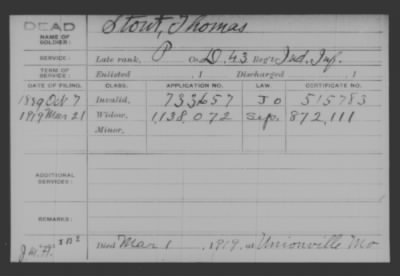 DEAD
NAME OF SOLDIER: Stout, Thomas
SERVICE: Late rank, P Co. D, 43 Reg't Ind. Inf.
TERM OF SERVICE: Enlisted , 1 Discharged , 1
DATE OF FILING. CLASS. APPLICATION NO. LAW. CERTIFICATE NO.
1889 Oct 7 Invalid, 733657 J O 515783
1919 Mar 21 Widow, 1,138,072 Sep. 872,111
Minor,
ADDITIONAL SERVICES:
REMARKS:
Died Mar 1 , 1919, at Unionville Mo